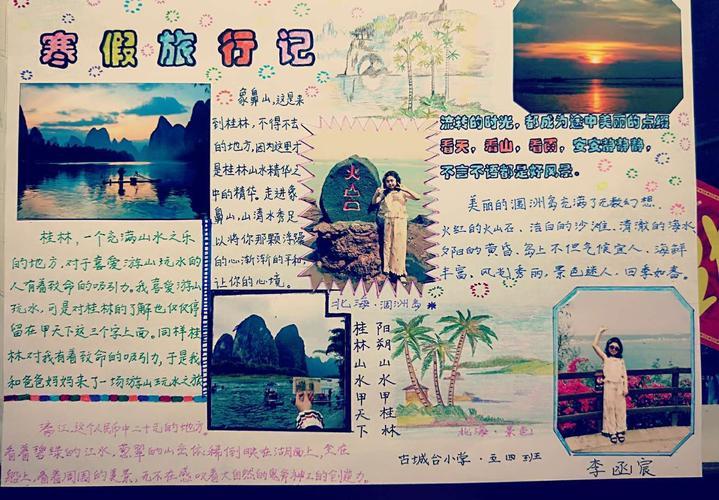 寒假旅行记
象鼻山,这是来
到桂林,不得不去
的地方,因为这里才
是桂林山水精华之
中的精华。走进象
鼻山,山清水秀足
以将你那颗浮躁
的心渐渐的平和,
让你的心境。
流转的时光,都成为途中美丽的点缀
看天,看山,看雨,安安静静静,
不言不语都是好风景。
美丽的涠洲岛充满了无数幻想,
火红的火山石、洁白的沙滩、清澈的海水
夕阳的黄昏,岛上不但气候宜人,海鲜
丰富,风光秀丽,景色迷人,四季如春。
火山口
北海·涠洲岛
桂林,一个充满山水之乐
的地方,对于喜爱游山玩水的
人有着致命的吸引力。我喜爱游山
玩水,可是对桂林的了解也仅仅停
留在甲天下这三个字上面。同样桂
林对我有着致命的吸引力,于是我
和爸爸妈妈来了一场游山玩水之旅
桂林山水甲天下
阳朔山水甲桂林
北海·景色
漓江,这个人民币中二十元的地方。
看着碧绿的江水,葱翠的山峦倒映在湖面上,坐在
船上,看着周围的美景,无不在感叹着大自然的鬼斧神工的创造力。
古城台小学·五四班
李函宸